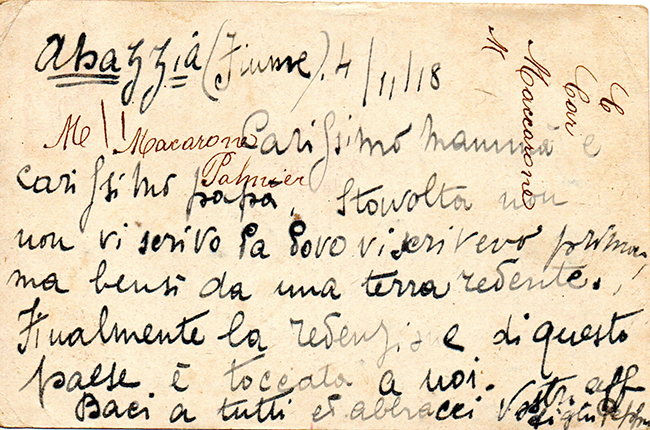 Abazzia (Fiume). 4/11/18
C
Car
Maccarone
M
M Macarone
Palmier
Carissimo mammà e
carissimo papà, Stavolta non
non vi scrivo da dove vi scrivevo prima,
ma bensì da una terra redente.
Finalmente la redenzione di questo
paese è toccata a noi.
Baci a tutti ed abbracci Vostr. aff
figlio